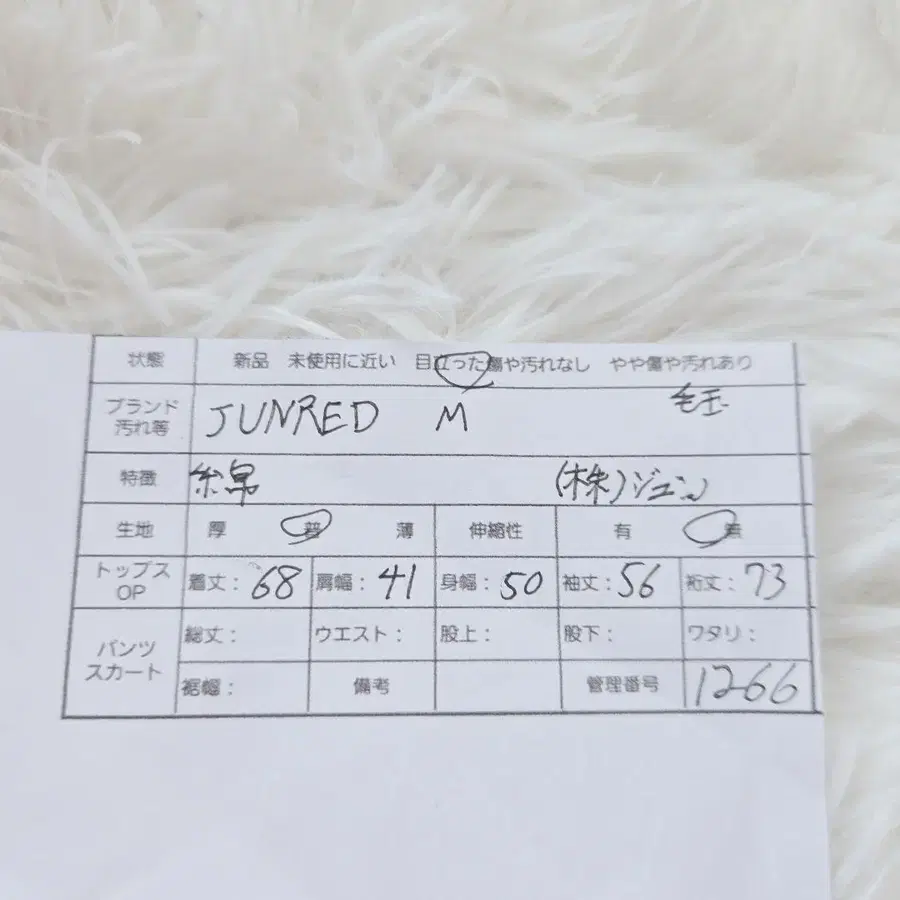 状態 新品 未使用に近い 目立った傷や汚れなし やや傷や汚れあり
ブランド 汚れ等 JUNRED M 毛玉
特徴 綿 (株)ジュン
生地 厚 普 薄 伸縮性 有 無
トップス OP 着丈:68 肩幅:41 身幅:50 袖丈:56 裄丈:73
パンツ スカート 総丈: ウエスト: 股上: 股下: ワタリ:
裾幅: 備考 管理番号 1266